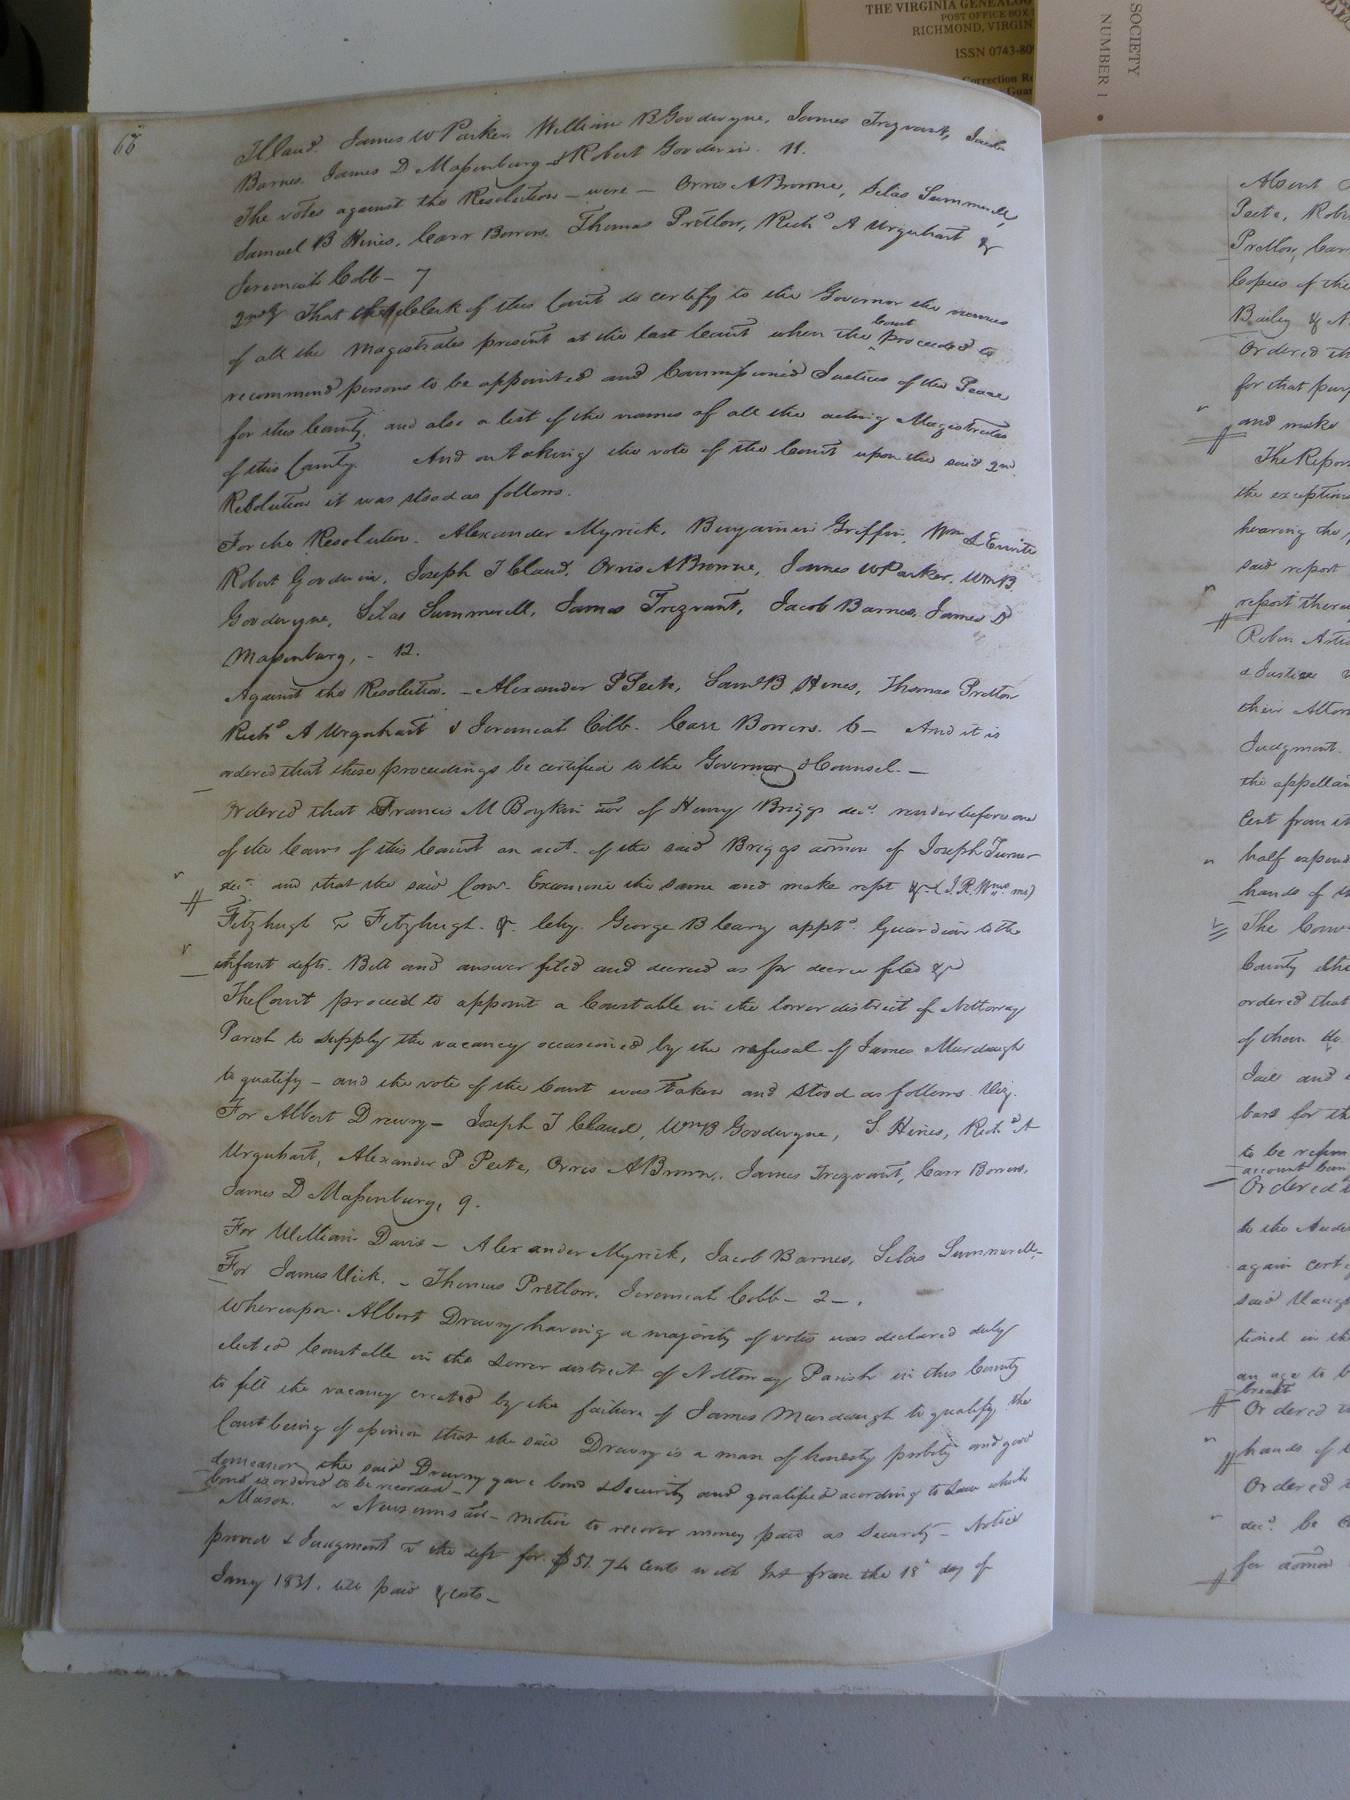 THE VIRGINIA GENEALO
POST OFFICE BOX
RICHMOND, VIRGIN
ISSN 0743-809
Correction Re
Guar
SOCIETY
NUMBER 1
68
T Claud. James W Parker. William B Goodwyne, James Trezvant, Jacob
Barnes. James D Massenburg & Robert Goodwin. 11.
The votes against the Resolution – were – Orris A Browne, Silas Summerell,
Samuel B Hines, Carr Bowers, Thomas Pretlow, Richd A Urquhart &
Jeremiah Cobb – 7
2ndly That the Clerk of this Court do certify to the Governor the names
of all the Magistrates present at the last Court when the Court proceeded to
recommend persons to be appointed and Commissioned Justices of the Peace
for this County, and also a list of the names of all the acting Magistrates
of this County. And on taking the vote of the Court upon the said 2nd
Resolution it was stood as follows.
For the Resolution. Alexander Myrick, Benjamin Griffin, Wm
Robert Goodwin, Joseph T Claud, Orris A Browne, James W Parker, Wm B.
Goodwyne, Silas Summerell, James Trezvant, Jacob Barnes, James D
Massenburg, – 12.
Against the Resolution. – Alexander P Peete, Saml B Hines, Thomas Pretlow
Richd A Urquhart & Jeremiah Cobb. Carr Bowers. 6 – And it is
ordered that these proceedings be certified to the Governor & Counsel. –
Ordered that Francis M Boykin of Henry Briggs decd. render before one
of the Coms of this Court an acct. of the said Briggs admon of Joseph Turner
decd. and that the said Comr. Examine the same and make rept &c (J. R. Wms. mo)
Fitzhugh v Fitzhugh. &. Chy. George B Cary apptd. Guardian to the
infant defts. Bill and answer filed and decreed as pr decree filed &c
The Court proceed to appoint a Constable in the lower district of Nottoway
Parish to supply the vacancy occasioned by the refusal of James Murdaugh
to qualify – and the vote of the Court was taken and stood as follows. Viz.
For Albert Drewry – Joseph T Claud, Wm B Goodwyne, S. Hines, Richd A
Urquhart, Alexander P Peete, Orris A Brown, James Trezvant, Carr Bowers,
James D Massenburg, 9.
For William Davis – Alexander Myrick, Jacob Barnes, Silas Summerell –
For James Vick. – Thomas Pretlow. Jeremiah Cobb – 2 –.
Whereupon. Albert Drewry having a majority of votes was declared duly
elected Constable in the Lower district of Nottoway Parish in this County
to fill the vacancy created by the failure of James Murdaugh to qualify. the
Court being of opinion that the said Drewry is a man of honesty probity and good
demeanor, the said Drewry gave bond & Security and qualified acording to Law which
bond is ordered to be recorded –
Mason. v Newsums – motion to recover money paid as Security – Notice
proved & Judgment v the deft for $51. 74 cents with Int from the 18th day of
Jany 1831. till paid & costs –
Absent
Peete, Rob
Pretlow, Carr
Copies of the
Bailey & N
Ordered th
for that pur
and make
The Repor
the exceptions
hearing the
said report
report there
a Justice
their Attor
Judgment.
the appellan
Cent from th
half expend
hands of th
The Com
County
ordered that
of them do
Jail and
bars for th
to be
account
Ordered
to the Audi
again cert
said Vaugh
tioned in th
an age to b
breast
Ordered
hands of t
Ordered
decd. be
for admon